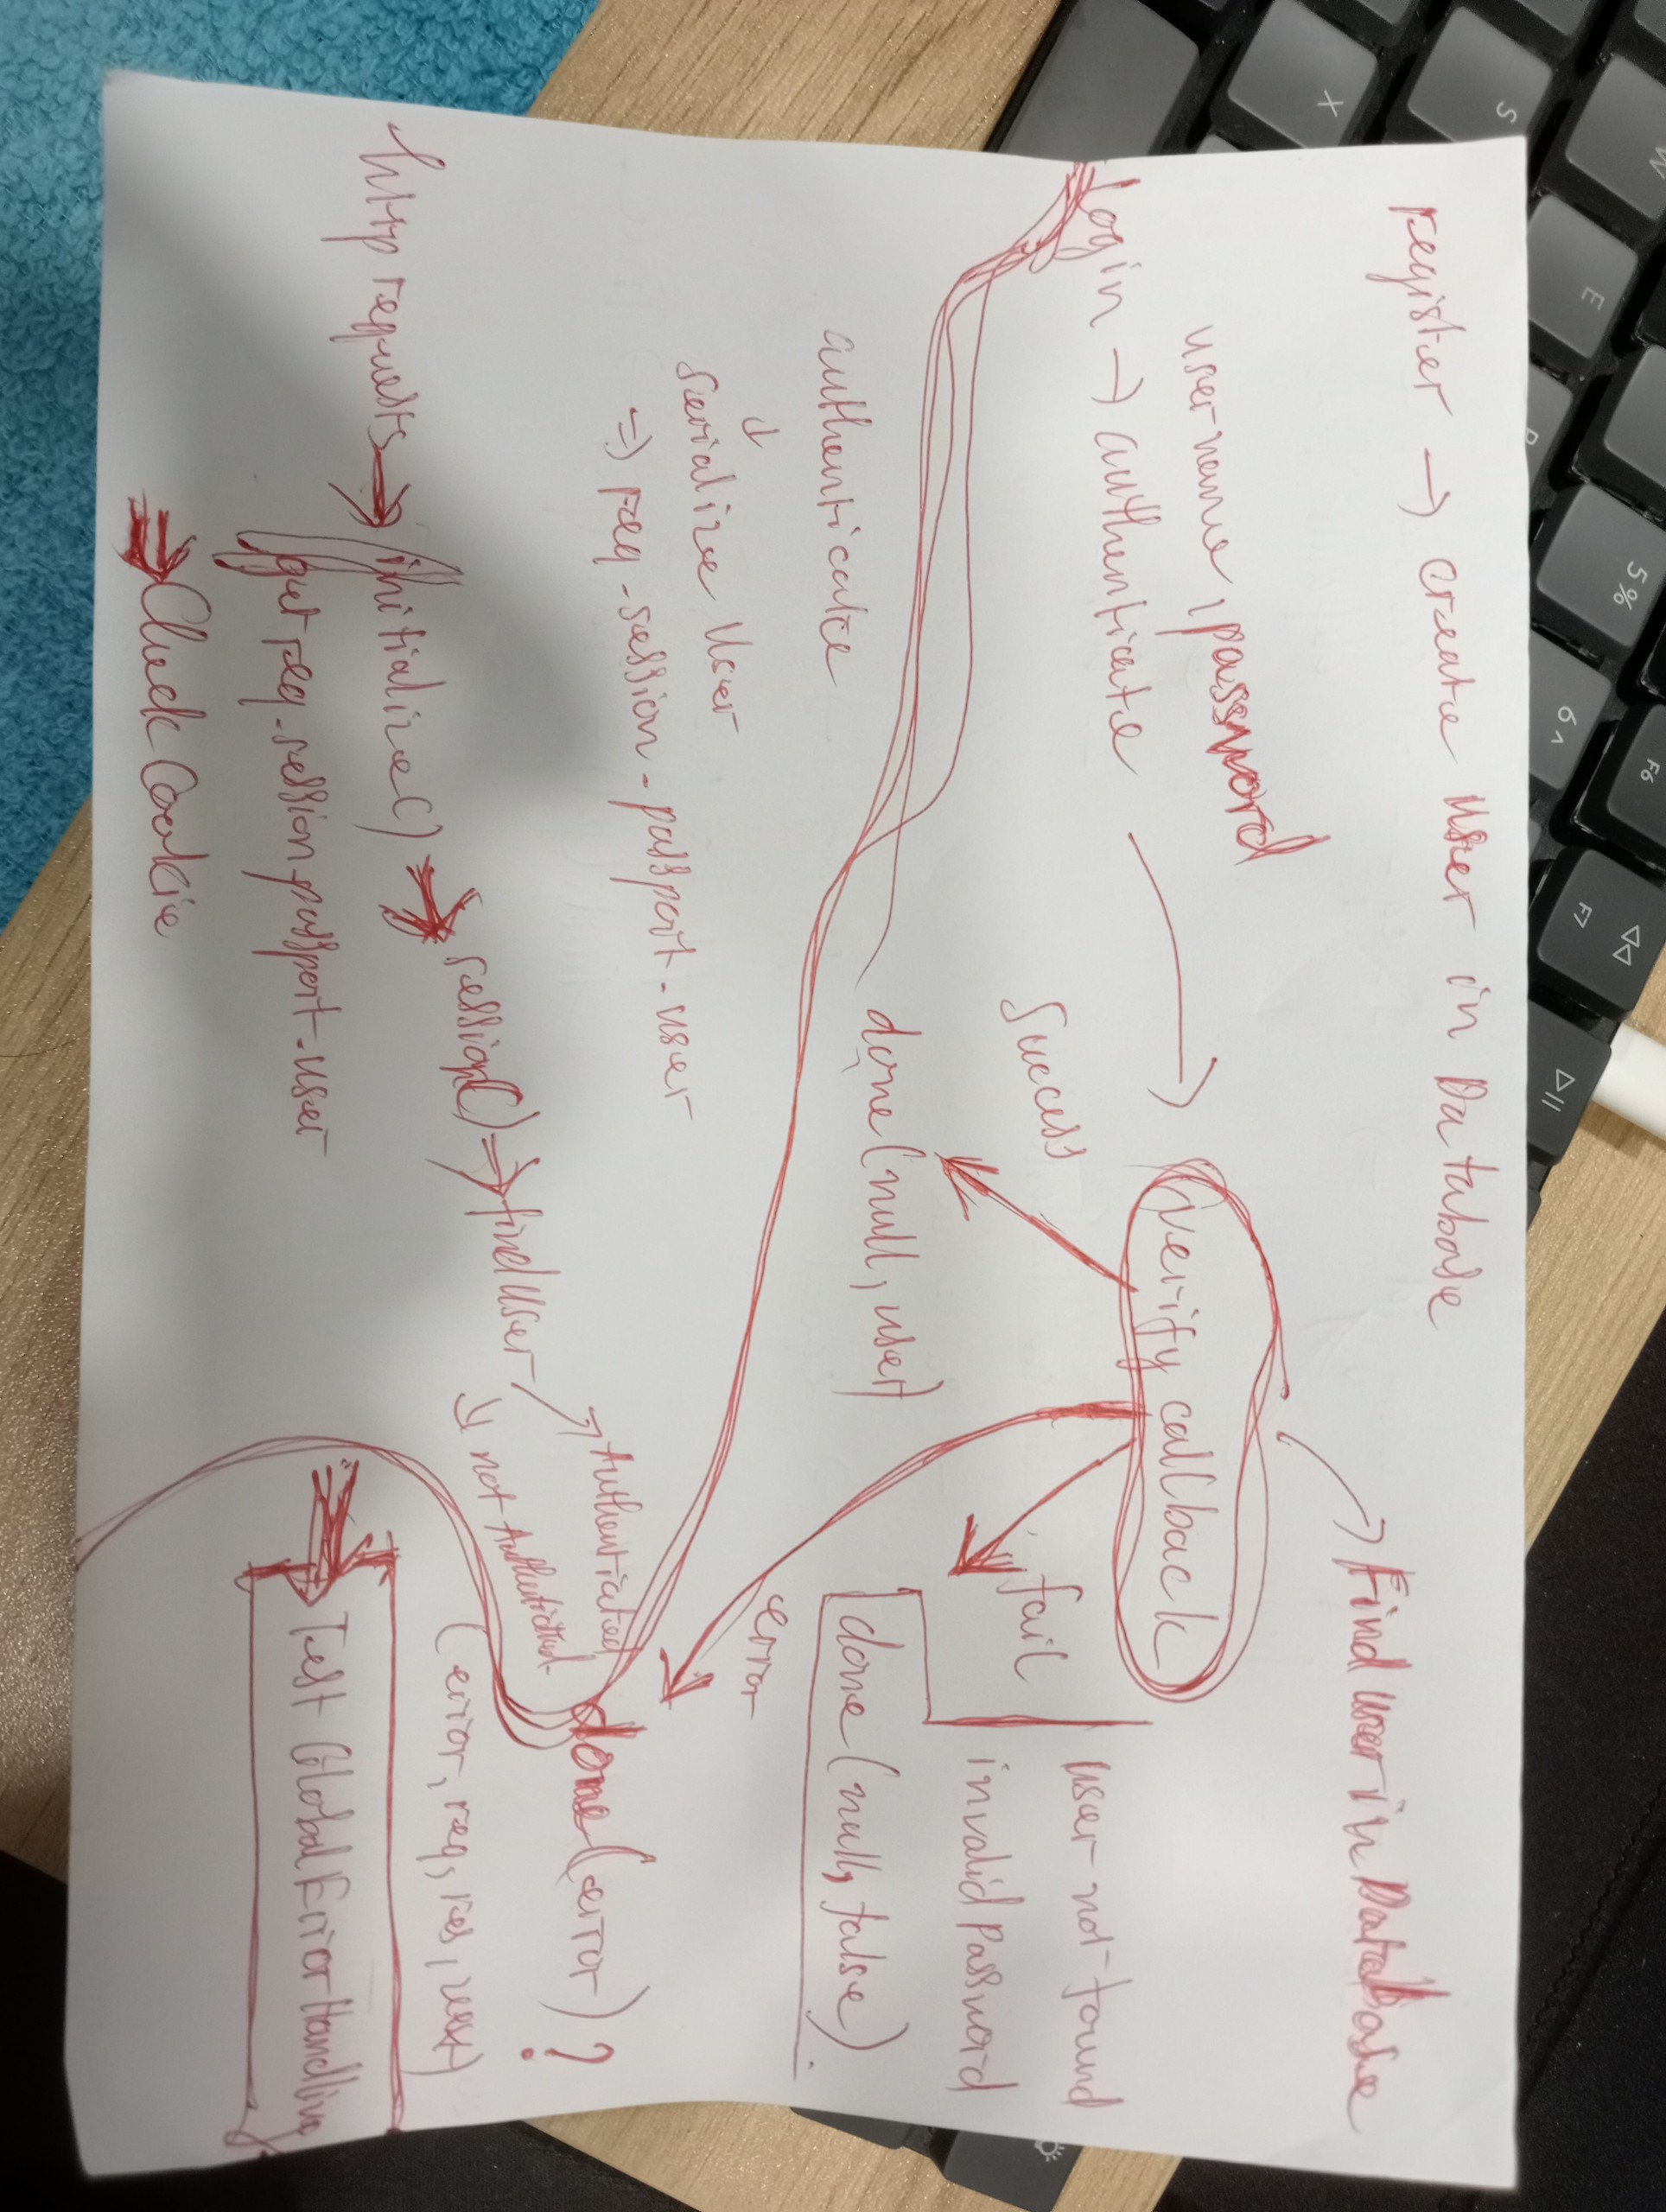 register → create user in Database
username, password
login → authenticate
verify callback
Find user in Database
Success
done(null, user)
fail
user not found
invalid password
done(null, false).
error
done(error)?
(error, req, res, next)
Test Global Error Handling
authenticate
↓
Serialize User
=> req.session.passport.user
http requests → initialize() → session() → find user
Authenticated
not Authenticated
get req.session.passport.user
=> Check Cookie
X
S
W
E
R
5 %
6 ^
F6
F7